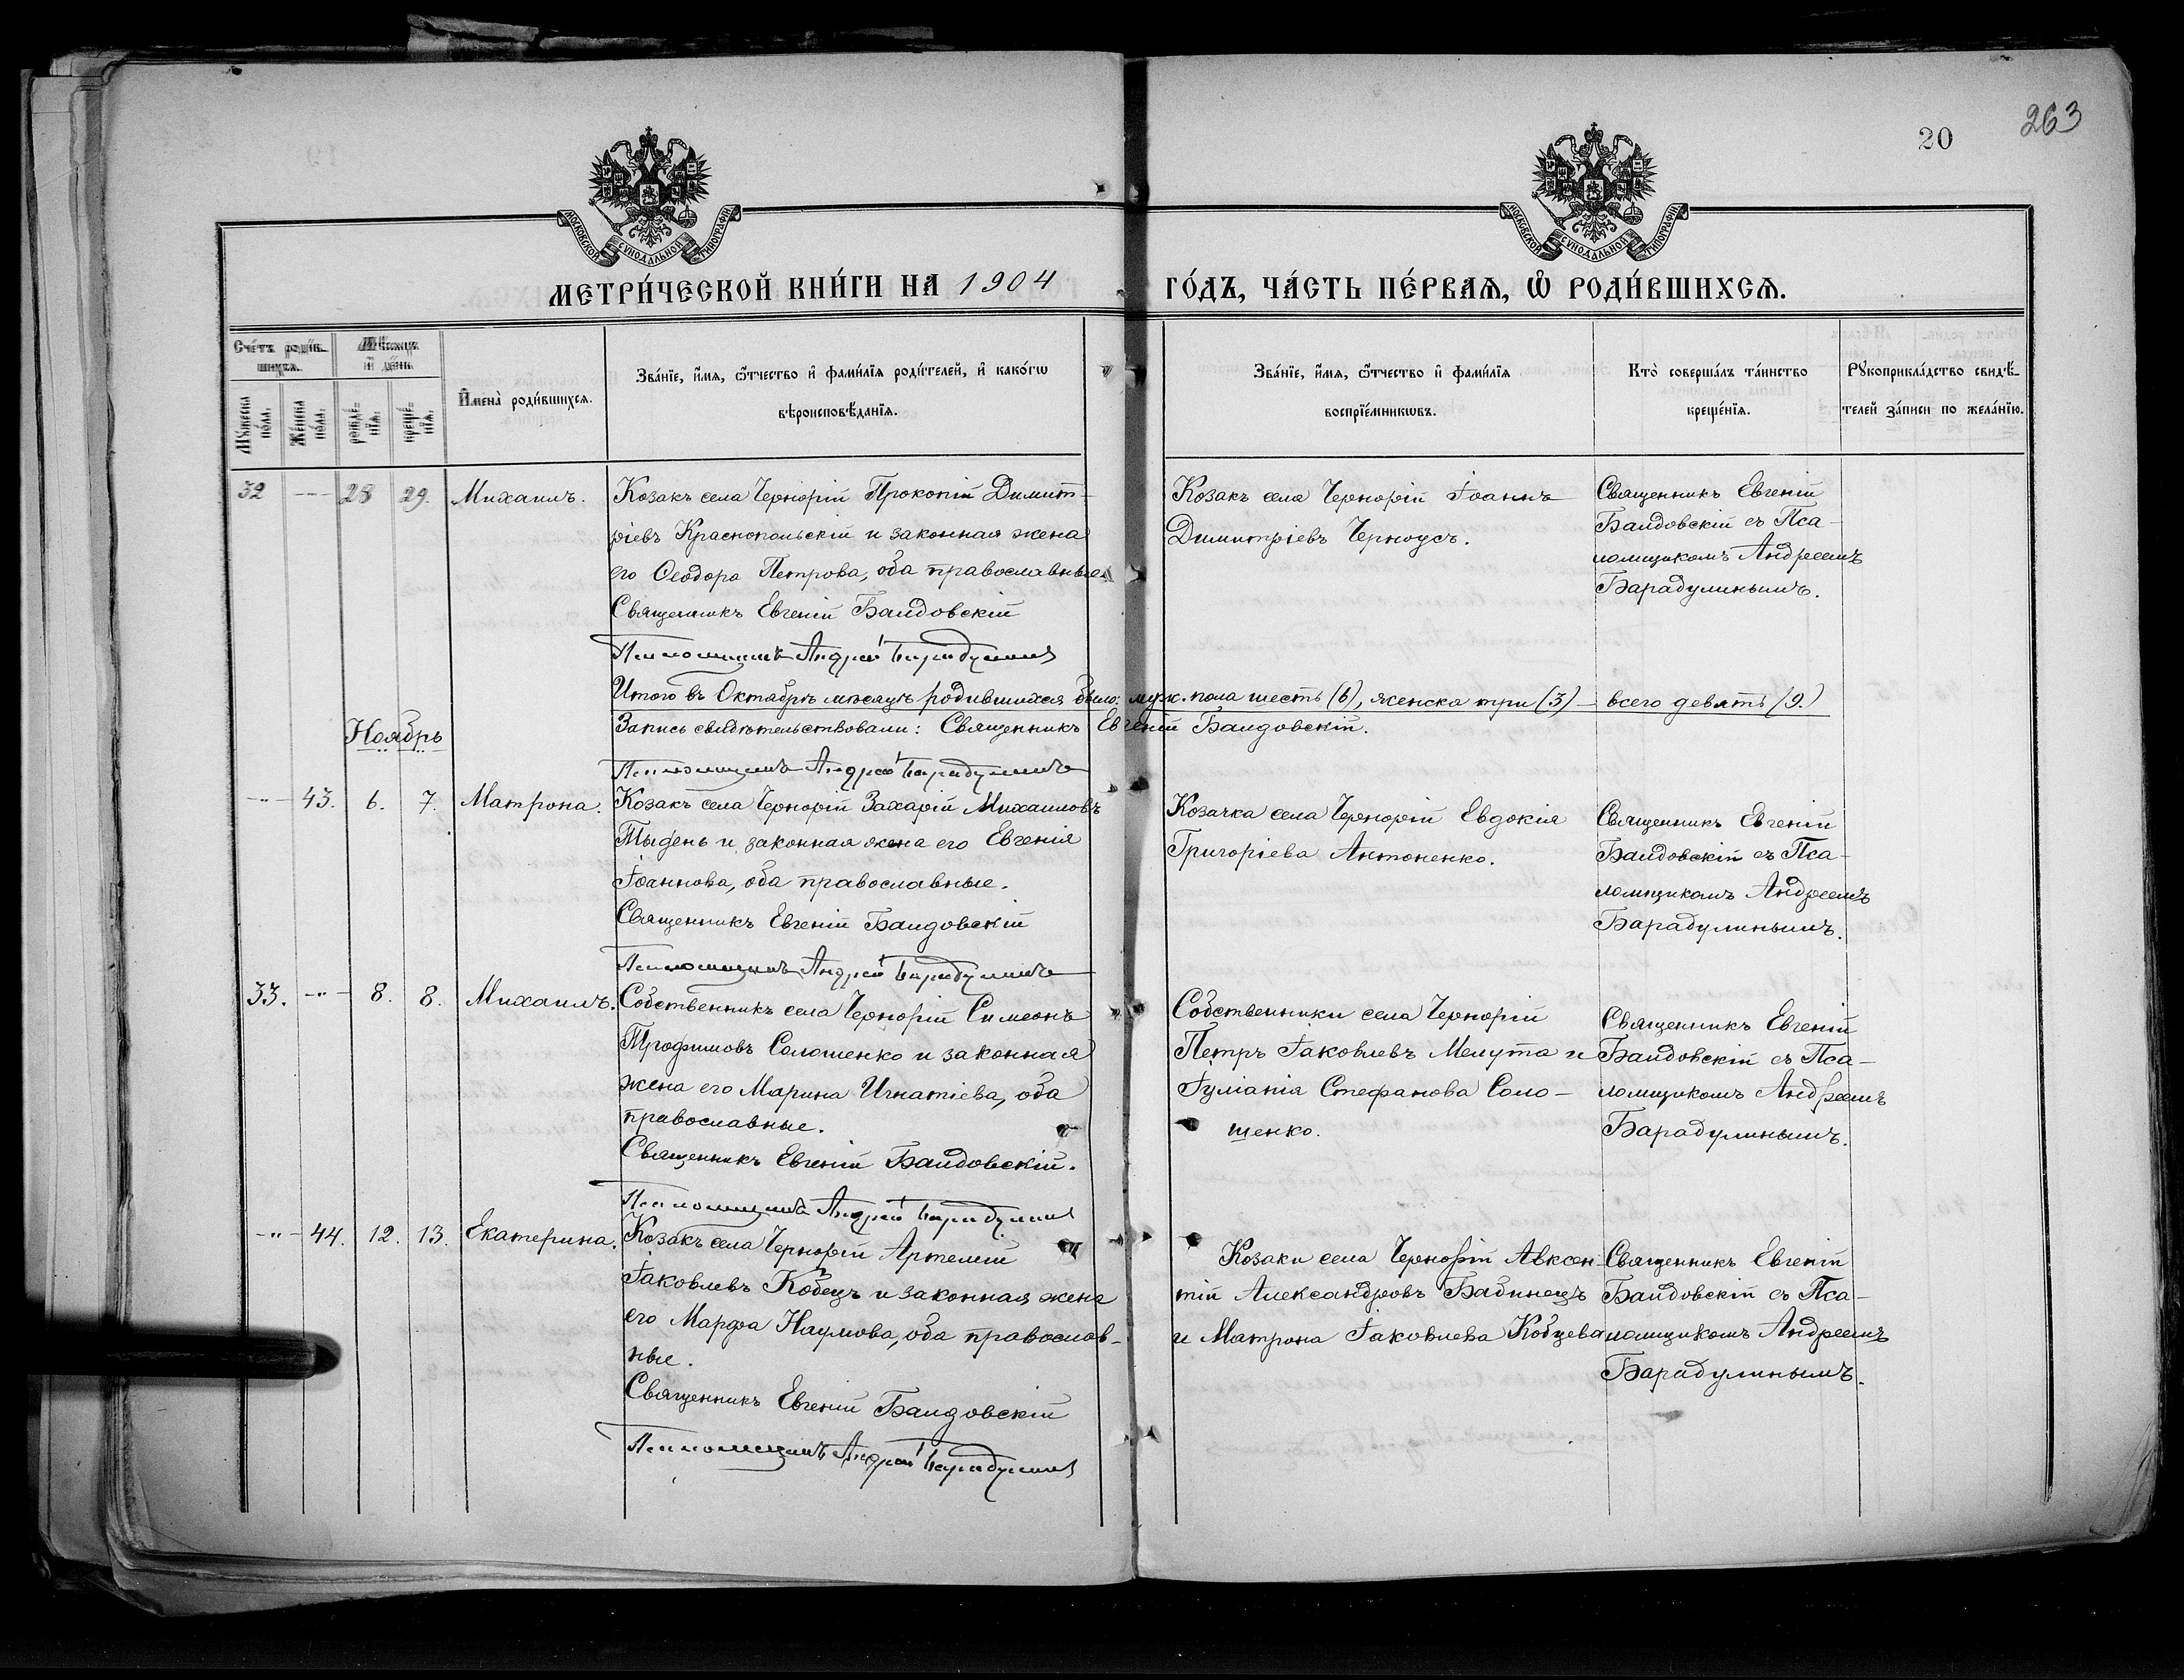 263
20
МОСКОВСКОЙ СУНОДАЛЬНОЙ ТИПОГРАФІИ
МОСКОВСКОЙ СУНОДАЛЬНОЙ ТИПОГРАФІИ
МЕТРИ́ЧЕСКОЙ КНИ́ГИ НА 1904
ГО́ДЪ, ЧА́СТЬ ПЕ́РВАѦ, Ѽ РОДИ́ВШИХСѦ.
Сче́тъ роди́в-
шихся.
Мѣ́сяцъ
и҆ де́нь
Му́жеска по́ла.
Же́нска по́ла.
рожде́-
нїя.
креще́-
нїя.
И҆мена̀ роди́вшихся.
Зва́нїе, и҆́мя, ѻ҆́тчество и҆ фами́лїя роди́телей, и҆ како́гѡ
вѣроисповѣ́данїя.
Зва́нїе, и҆́мя, ѻ҆́тчество и҆ фами́лїя
воспрїе́мникѡвъ.
Кто̀ соверша́лъ та́инство
креще́нїя.
Рꙋкоприкла́дство свидѣ́-
телей за́писи по жела́нїю.
32 -"- 28 29. Михаилъ.
Козакъ села Черноріи Прокопій Димит-
ріевъ Краснопольскій и законная жена
его Ѳеодора Петрова, оба православные.
Священникъ Евгеній Баидовскій
Псаломщикъ Андрей Барадулинъ
Козакъ села Черноріи Іоаннъ
Димитріевъ Черноусъ.
Священникъ Евгеній
Баидовскій съ Пса-
ломщикомъ Андреемъ
Барадулинымъ.
Итого въ Октябрѣ мѣсяцѣ родившихся было: муж. пола шесть (6), женска три (3) — всего девять (9.)
Запись свидѣтельствовали: Священникъ Евгеній Баидовскій.
Псаломщикъ Андрей Барадулинъ
Ноябрь
-"- 43. 6. 7. Матрона.
Козакъ села Черноріи Захарій Михаиловъ
Тыдень и законная жена его Евгенія
Іоаннова, оба православные.
Священникъ Евгеній Баидовскій
Псаломщикъ Андрей Барадулинъ
Козачка села Черноріи Евдокія
Григоріева Антоненко.
Священникъ Евгеній
Баидовскій съ Пса-
ломщикомъ Андреемъ
Барадулинымъ.
33. -"- 8. 8. Михаилъ.
Собственникъ села Черноріи Симеонъ
Трофимовъ Солошенко и законная
жена его Марина Игнатіева, оба
православные.
Священникъ Евгеній Баидовскій.
Псаломщикъ Андрей Барадулинъ
Собственники села Черноріи
Петръ Іаковлевъ Мелута и
Іуліанія Стефанова Соло-
шенко.
Священникъ Евгеній
Баидовскій съ Пса-
ломщикомъ Андреемъ
Барадулинымъ.
-"- 44. 12. 13. Екатерина.
Козакъ села Черноріи Артемій
Іаковлевъ Кобецъ и законная жена
его Марфа Наумова, оба православ-
ные.
Священникъ Евгеній Баидовскій
Псаломщикъ Андрей Барадулинъ
Козаки села Черноріи Авксен-
тій Александровъ Бабинецъ
и Матрона Іаковлева Кобцева
Священникъ Евгеній
Баидовскій съ Пса-
ломщикомъ Андреемъ
Барадулинымъ.